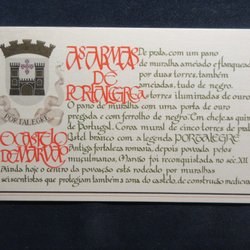 PORTALEGRE
AS ARMAS
DE
PORTALEGRE
De prata, com um pano
de muralha ameiado e flanqueado
por duas torres, também
ameiadas, tudo de negro.
torres iluminadas de ouro.
O pano de muralha com uma porta de ouro
pregada e com ferrolho de negro. Em chefe, as quinas
de Portugal. Coroa mural de cinco torres de prata.
listel branco com a legenda PORTALEGRE
O CASTELO
DE MARVÃO
Antiga fortaleza romana, depois povoada pelos
muçulmanos, Marvão foi reconquistada no séc. XII.
Ainda hoje o centro da povoação está rodeado por muralhas
seiscentistas que protegiam também a zona do castelo, de construção medieval